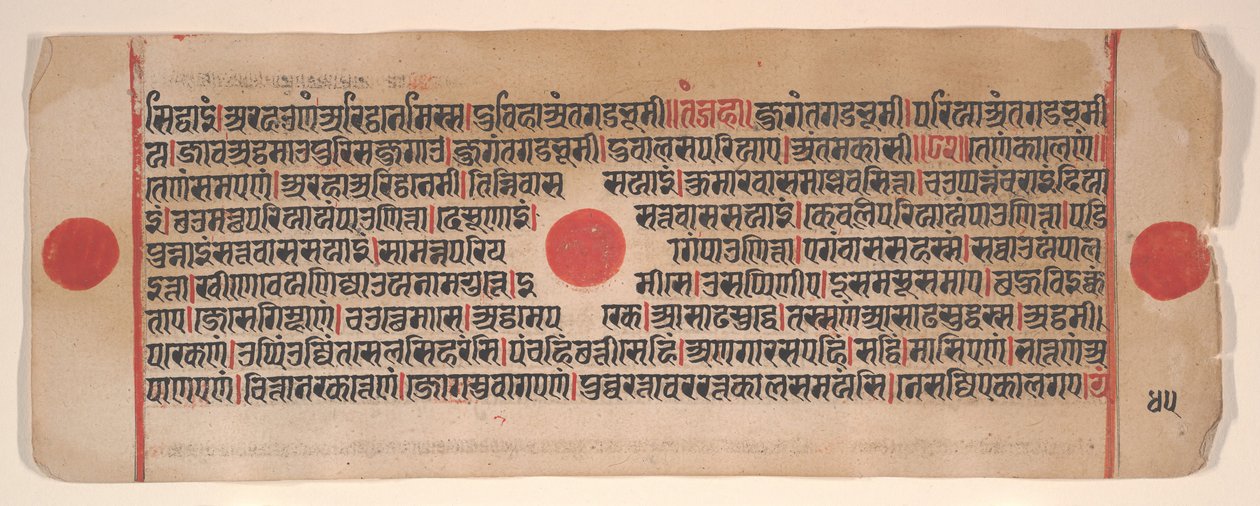 सिद्धाइं।अरहओणंअरिट्ठनेमिस्स।दुविहाअंतगडभूमी॥तंजहा।जुगंतगडभूमी।परियाअंतगडभूमी
या।जावअट्ठमाउपुरिसजुगाउ।जुगंतगडभूमी।दुवालसपरियाए।अंतमकासी॥८२॥तेणंकालेणं॥
तेणंसमएणं।अरहाअरिट्ठनेमी।तिन्निवास सयाइं।कुमारवासमज्झेवसित्ता।चउप्पन्नंचराइंदिया
इं।छउमत्थपरियायंपाउणित्ता।देसूणाइं। सत्तवाससयाइं।केवलीपरियायंपाउणित्ता।पडि
पुन्नाइंसत्तवाससयाइं।सामन्नपरिया गंपाउणित्ता।एगंवाससहस्सं।सव्वाउयंपाल
इत्ता।खीणेवेयणिज्जाउयनामगुत्ते।इ मीसे।उसप्पिणीए।दूसमसूसमाए।बहुविइक्कं
ताए।जेसेगिम्हाणं।चउत्थेमासे।अट्ठमेप रके।आसाढसुद्धे।तस्सणंआसाढसुद्धस्स।अट्ठमी।
पारकेणं।उप्पिंउज्जिंतसेलसिहरंसि।पंचहिंछत्तीसेहिं।अणगारसएहिं।सद्धिं।मासिएणं।भत्तेणंअ
पाणएणं।चित्तानरकत्तेणं।जोगमुवागएणं।पुव्वरत्तावररत्तकालसमयंसि।नेसज्जिएकालगए।यं
४५